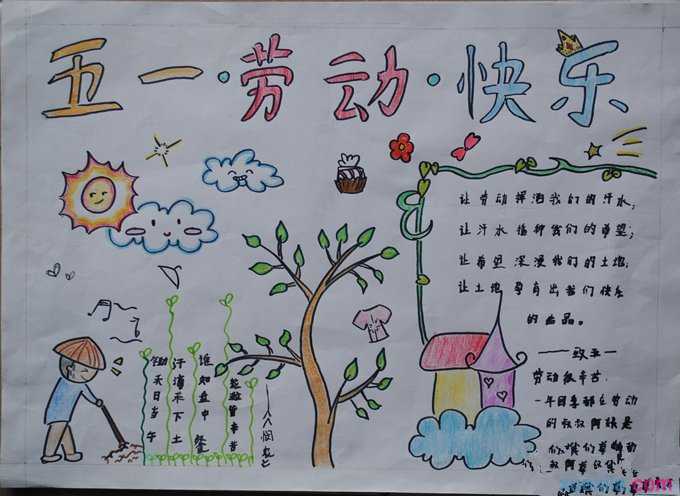 五一·劳动·快乐
让劳动挥洒我们的汗水;
让汗水播种我们的希望;
让希望深浸我们的土地;
让土地孕育出我们快乐
的出品。
——致五一
劳动很辛苦
一年四季都在劳动
的叔叔阿姨是
锄禾日当午
汗滴禾下土
谁知盘中餐
粒粒皆辛苦
——《悯农》